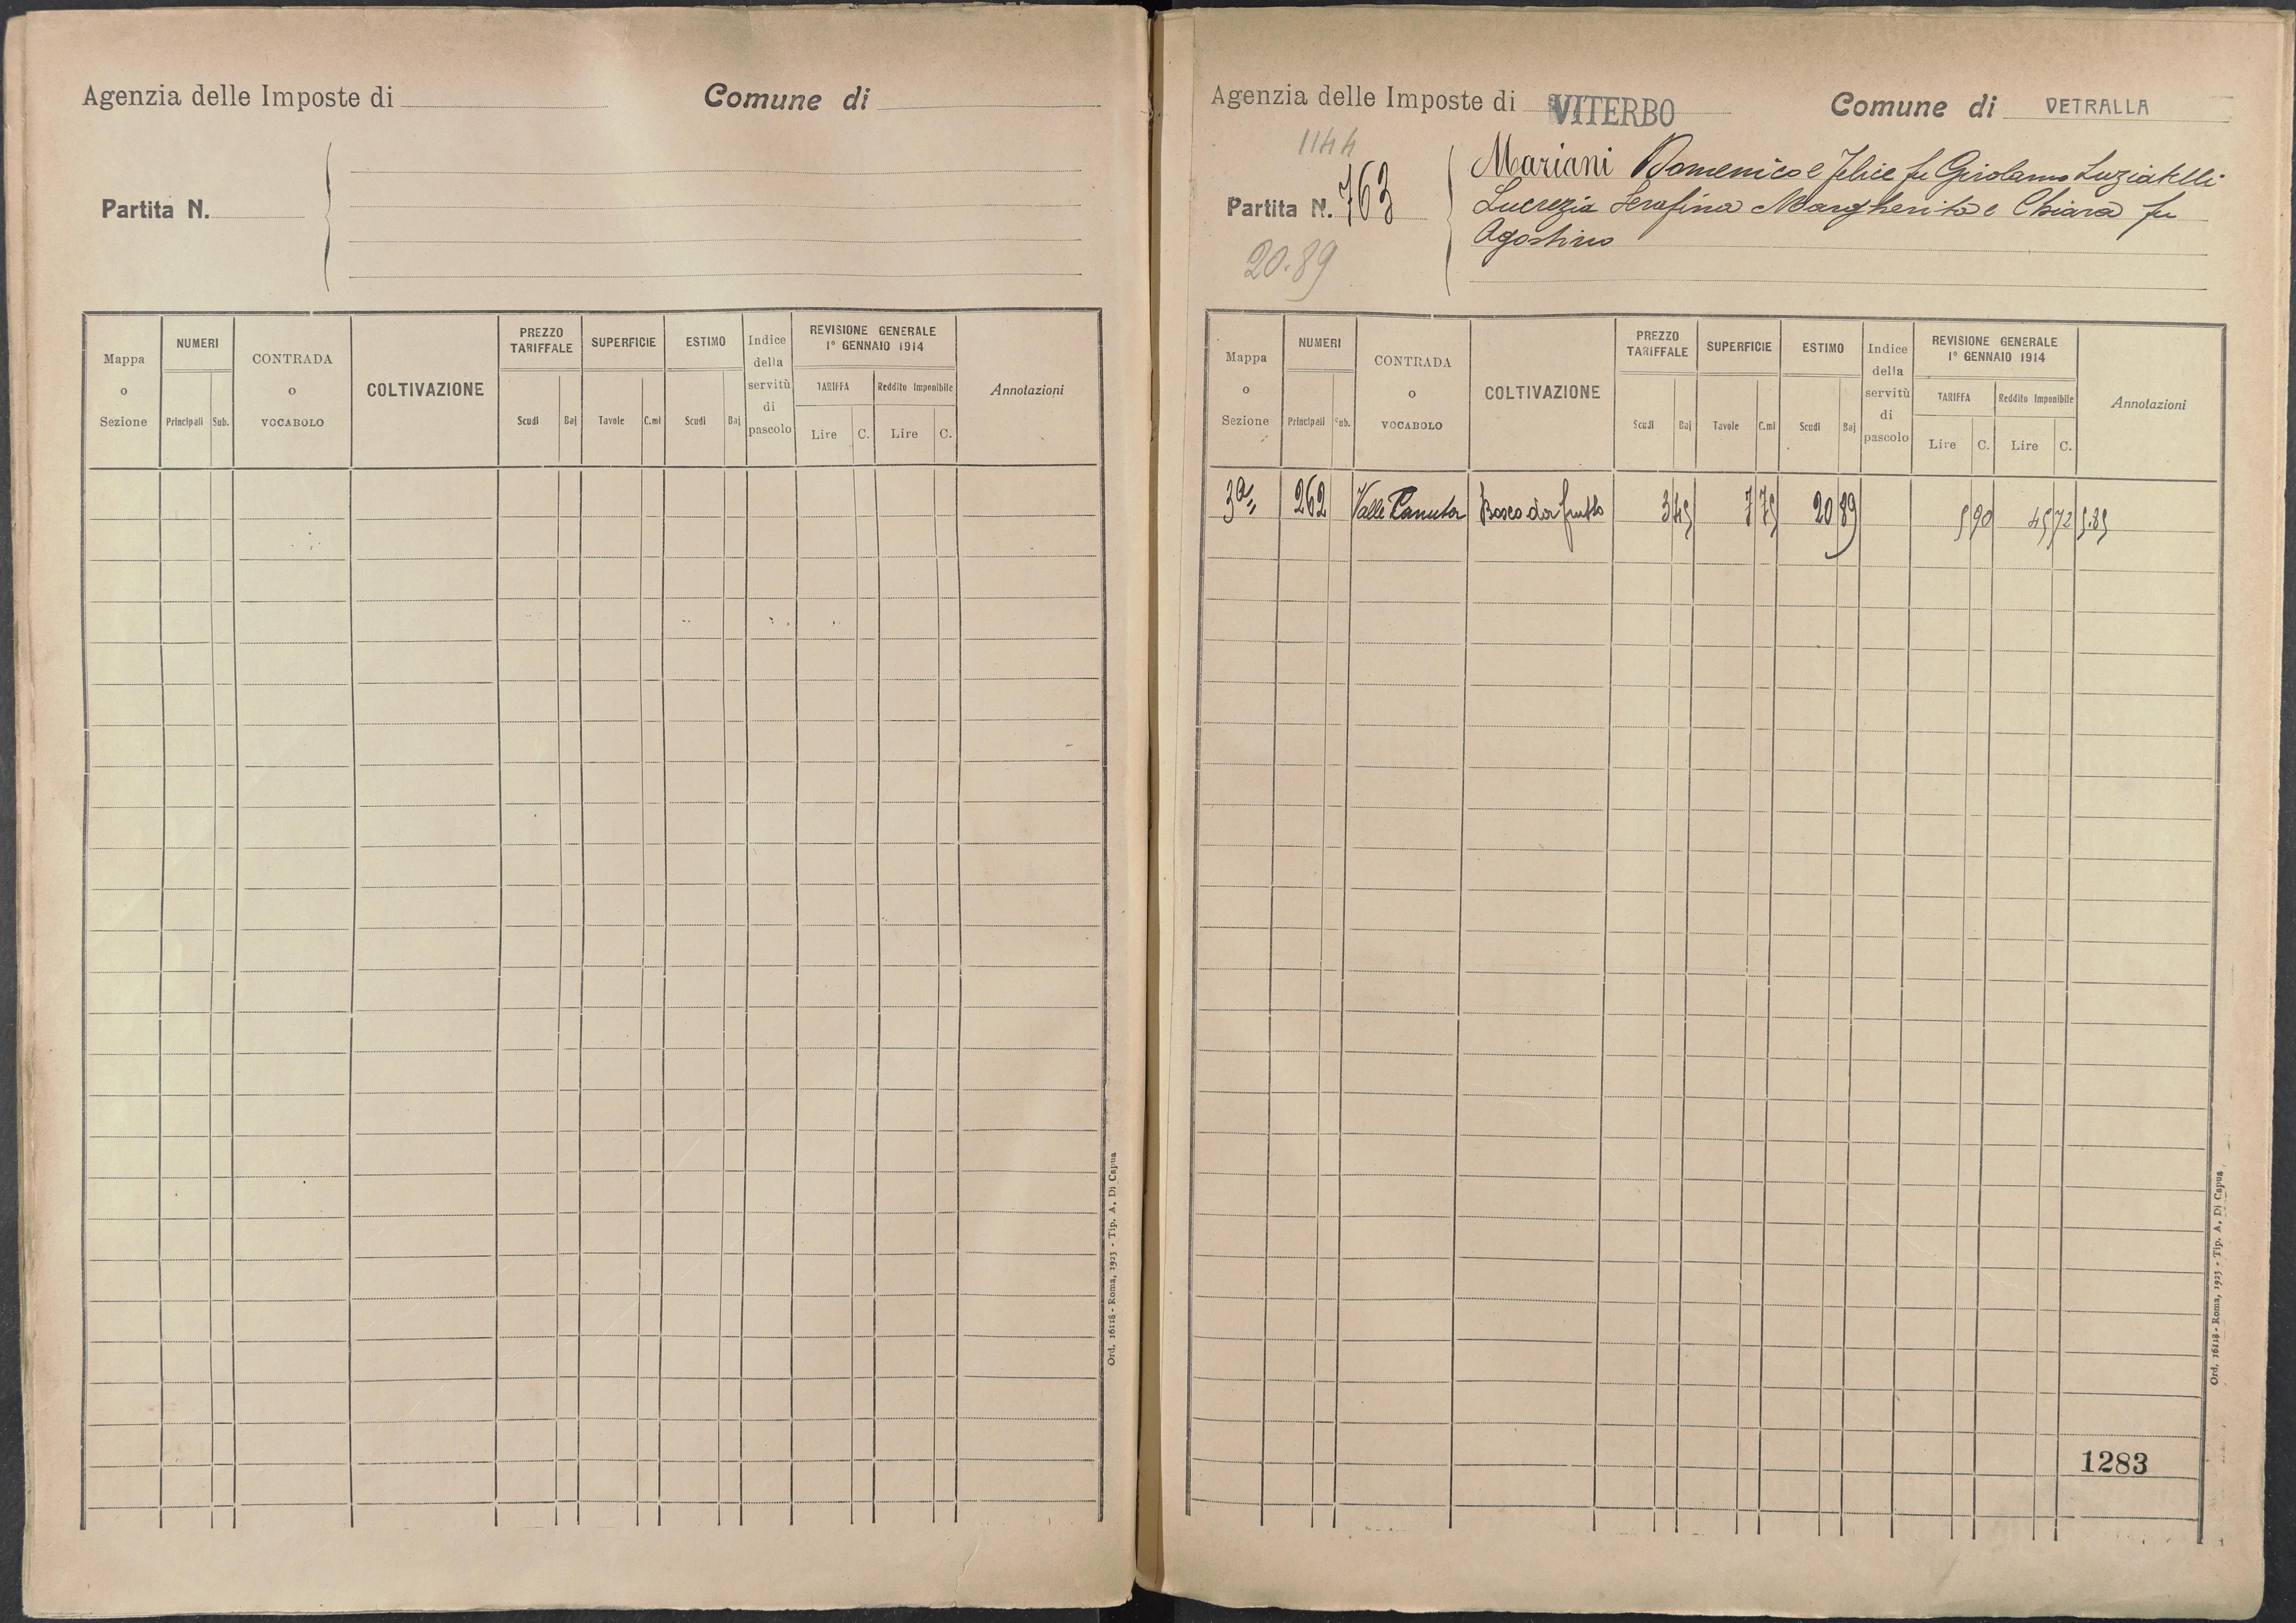 Agenzia delle Imposte di
Comune di
Partita N.
Mappa o Sezione
NUMERI
Principali Sub.
CONTRADA o VOCABOLO
COLTIVAZIONE
PREZZO TARIFFALE
Scudi Baj
SUPERFICIE
Tavole C.mi
ESTIMO
Scudi Baj
Indice della servitù di pascolo
REVISIONE GENERALE
1° GENNAIO 1914
TARIFFA Reddito Imponibile
Lire C. Lire C.
Annotazioni
Ord. 16118 - Roma, 1923 - Tip. A. Di Capua
Agenzia delle Imposte di VITERBO
Comune di VETRALLA
1144
Partita N. 763
20.89
Mariani Domenico e Felice fu Girolamo Luziatelli
Lucrezia Serafina Margherita e Chiara fu
Agostino
Mappa o Sezione
NUMERI
Principali Sub.
CONTRADA o VOCABOLO
COLTIVAZIONE
PREZZO TARIFFALE
Scudi Baj
SUPERFICIE
Tavole C.mi
ESTIMO
Scudi Baj
Indice della servitù di pascolo
REVISIONE GENERALE
1° GENNAIO 1914
TARIFFA Reddito Imponibile
Lire C. Lire C.
Annotazioni
3a 262 Valle Canuta Bosco da frutto 3 45 7 75 20 89 5 90 45 72 5.85
1283
Ord. 16118 - Roma, 1923 - Tip. A. Di Capua